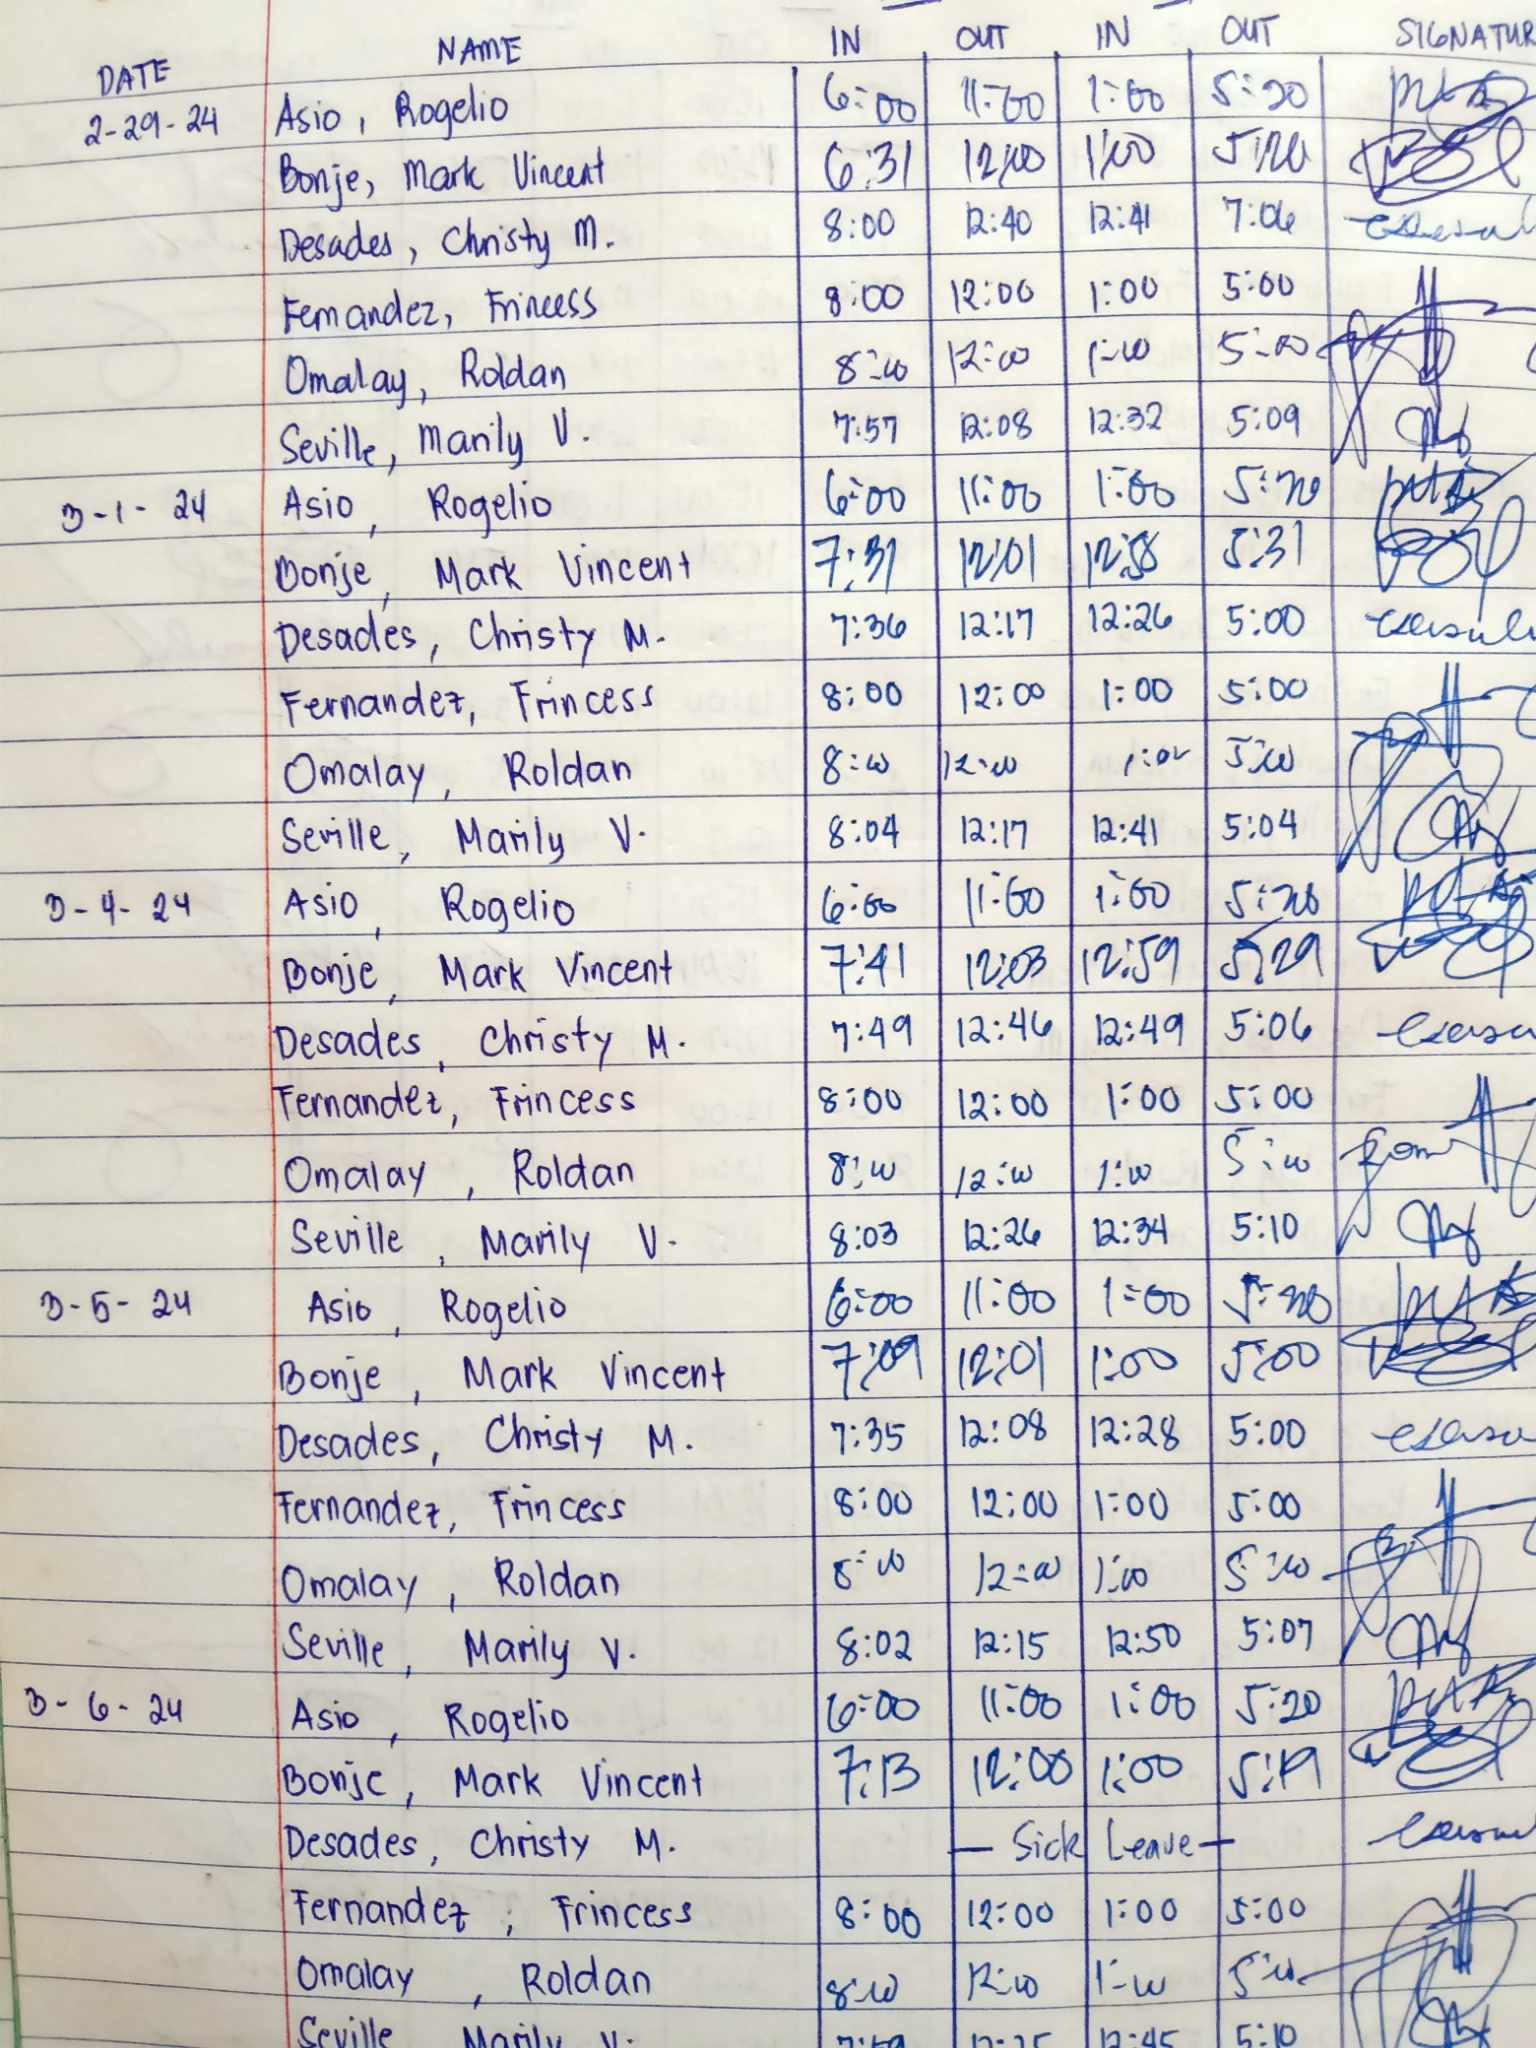 DATE NAME IN OUT IN OUT SIGNATUR
2-29-24 Asio, Rogelio 6:00 11:00 1:00 5:20
Bonje, Mark Vincent 6:31 12:00 1:00 5:20
Desades, Christy M. 8:00 12:40 12:41 7:06
Fernandez, Frincess 8:00 12:00 1:00 5:00
Omalay, Roldan 8:00 12:00 1:00 5:00
Seville, Marily V. 7:57 12:08 12:32 5:09
3-1-24 Asio, Rogelio 6:00 11:00 1:00 5:20
Bonje, Mark Vincent 7:31 12:01 12:58 5:31
Desades, Christy M. 7:36 12:17 12:26 5:00
Fernandez, Frincess 8:00 12:00 1:00 5:00
Omalay, Roldan 8:00 12:00 1:00 5:00
Seville, Marily V. 8:04 12:17 12:41 5:04
3-4-24 Asio, Rogelio 6:00 11:00 1:00 5:20
Bonje, Mark Vincent 7:41 12:03 12:59 5:29
Desades, Christy M. 7:49 12:46 12:49 5:06
Fernandez, Frincess 8:00 12:00 1:00 5:00
Omalay, Roldan 8:00 12:00 1:00 5:00
Seville, Marily V. 8:03 12:26 12:34 5:10
3-5-24 Asio, Rogelio 6:00 11:00 1:00 5:20
Bonje, Mark Vincent 7:09 12:01 1:00 5:00
Desades, Christy M. 7:35 12:08 12:28 5:00
Fernandez, Frincess 8:00 12:00 1:00 5:00
Omalay, Roldan 8:00 12:00 1:00 5:00
Seville, Marily V. 8:02 12:15 12:50 5:07
3-6-24 Asio, Rogelio 6:00 11:00 1:00 5:20
Bonje, Mark Vincent 7:13 12:00 1:00 5:19
Desades, Christy M. — Sick Leave —
Fernandez, Frincess 8:00 12:00 1:00 5:00
Omalay, Roldan 8:00 12:00 1:00 5:00
Seville, Marily V. 7:59 12:45 5:10